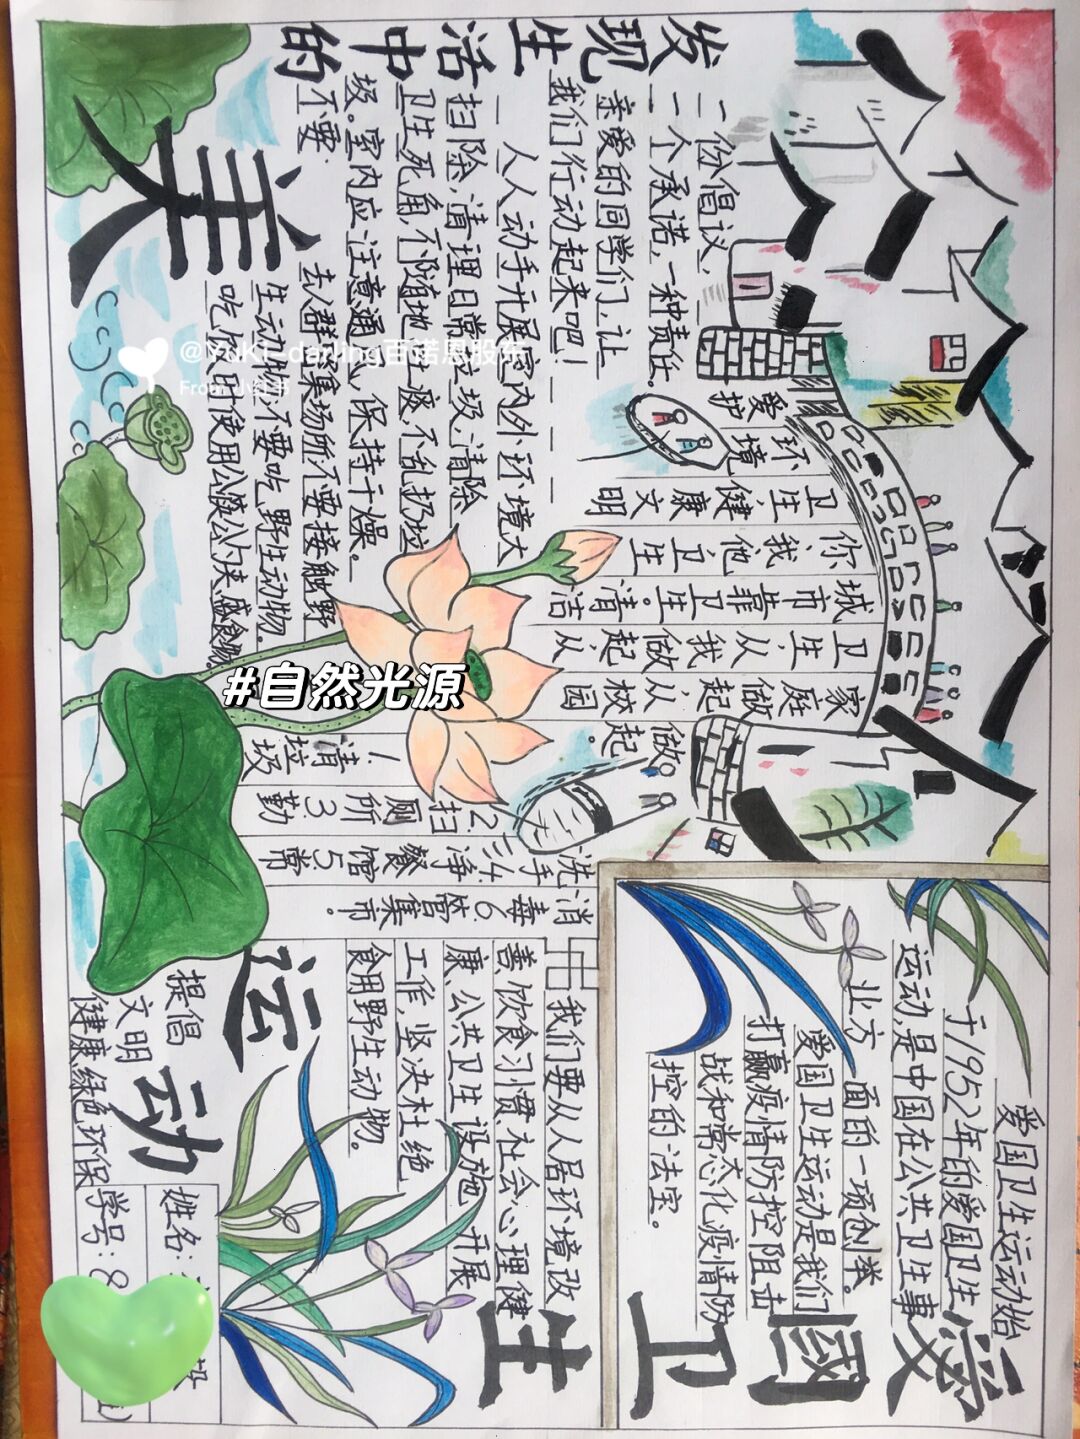 发现生活中的美
一份倡议,
一个承诺,一种责任。
亲爱的同学们,让
我们行动起来吧!
人人动手开展室内外环境大
扫除,清理日常垃圾,清除
卫生死角,不随地吐痰,不乱扔垃
圾。室内应注意通风,保持干燥。
不要:
去人群密集场所不要接触野
生动物不要吃野生动物。
吃饭时使用公筷公勺夹盛食物。
爱护
环境
卫生健康文明
你我他卫生
城市靠卫生。清洁
卫生,从我做起,从
家庭做起从校园
做起。
1.清垃圾
2.扫厕所3.勤
洗手4.净餐馆5.常
消毒6.管集市。
爱国卫生运动始
于1952年的爱国卫生
运动,是中国在公共卫生事
业方面的一项创举。
爱国卫生运动是我们
打赢疫情防控阻击
战和常态化疫情防
控的法宝。
愛國卫生
运动
我们要从人居环境改
善、饮食习惯、社会心理健
康、公共卫生设施 开展
工作,坚决杜绝
食用野生动物。
提倡
文明
健康绿色环保
姓名:
学号:8
#自然光源
@Yuki_darling百诺恩股东
From 小红书